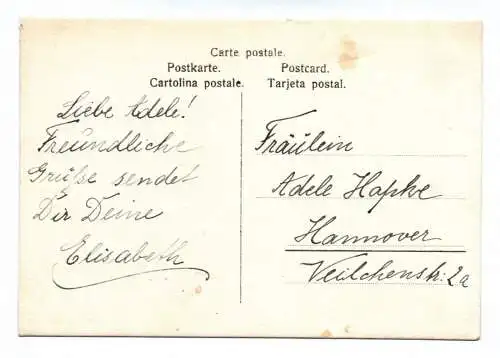 Carte postale.
Postkarte. Postcard.
Cartolina postale. Tarjeta postal.
Liebe Adele!
Freundliche
Grüße sendet
Dir Deine
Elisabeth
Fräulein
Adele Hapke
Hannover
Veilchenstr. 2a